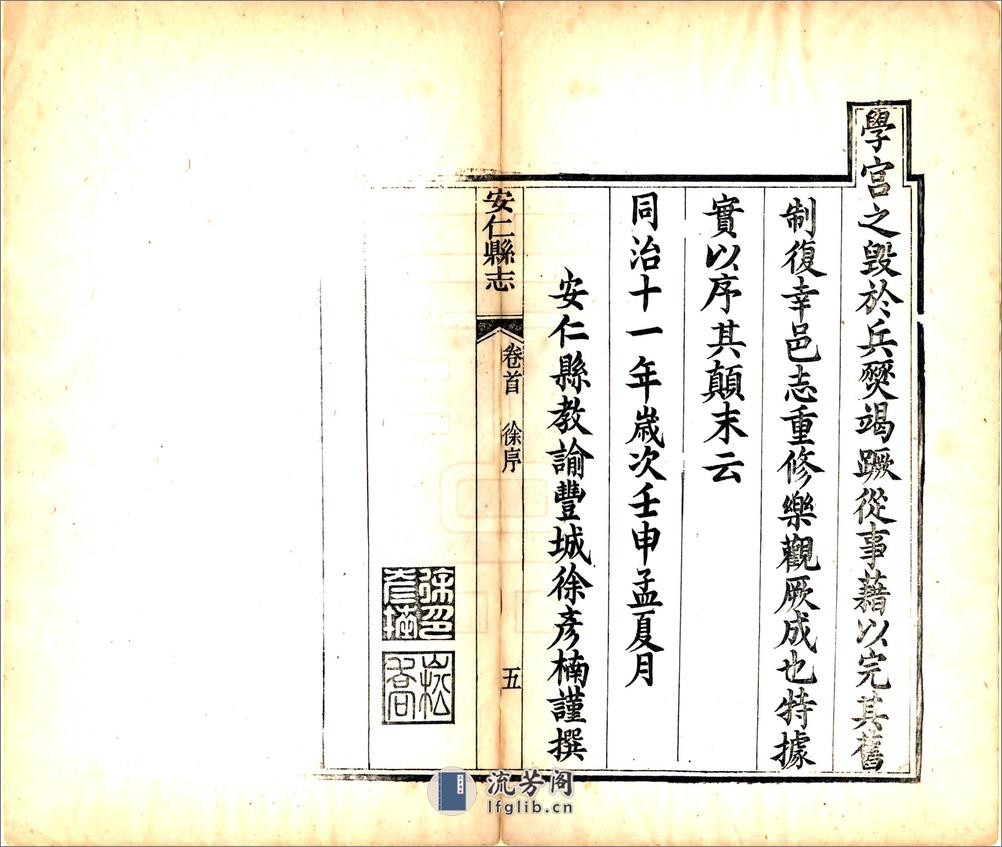 學宮之毀於兵燹竭蹶從事藉以完其舊
制復幸邑志重修樂觀厥成也特據
實以序其顛末云
同治十一年歲次壬申孟夏月
安仁縣教諭豐城徐彥楠謹撰
安仁縣志
卷首 徐序
五
徐印
彥楠
流芳阁
lfglib.cn